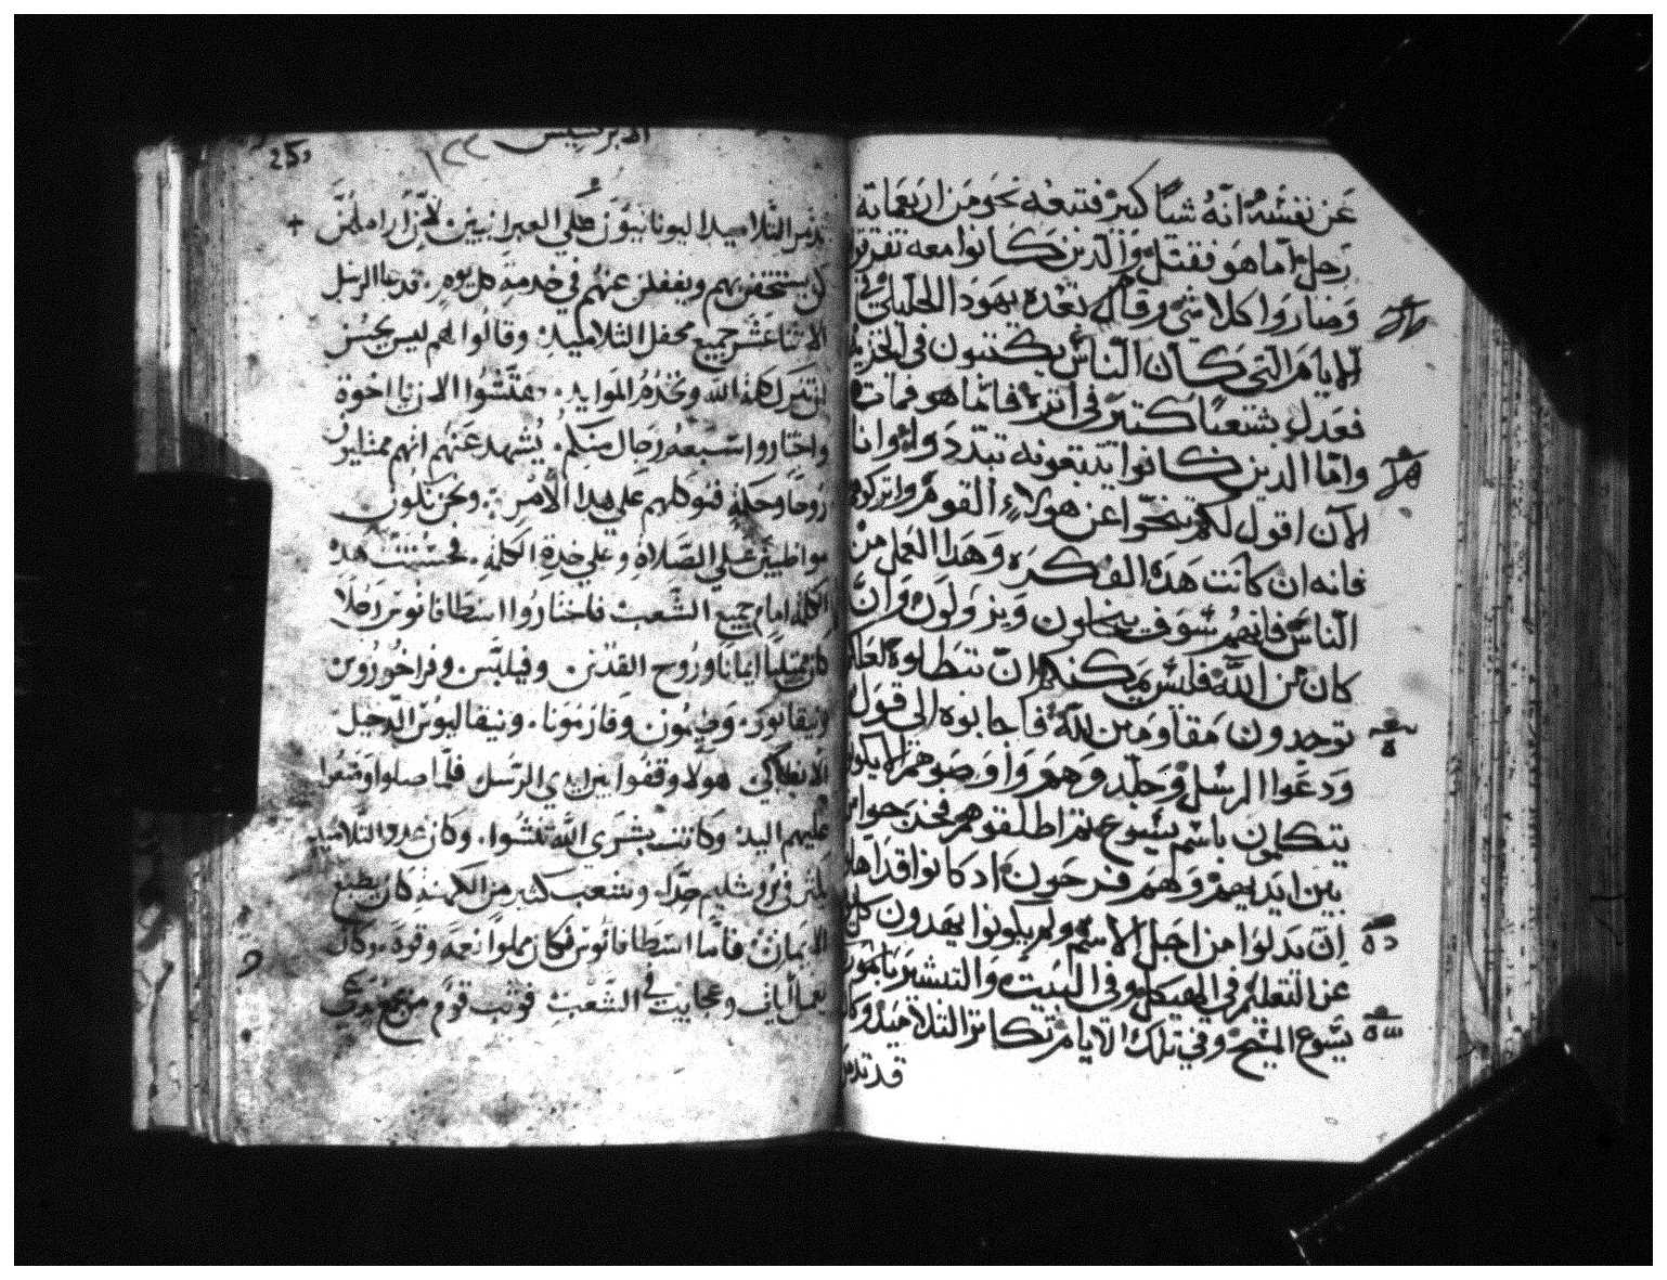 عن نفسه انه شياً كبير فتبعه نحو من اربعماية
رجل اما هو فقتل والذين كانوا معه تفرقوا
وصاروا كلا شي وقام بعده يهودا الجليلي في
الايام التي كان الناس يكتتبون في الجزية
فعدل بشعباً كتير في اثره فاما هو فمات
واما الدين كانوا يتبعونه تبددوا وانا
الان اقول لكم تنحوا عن هولاء القوم واتركوهم
فانه ان كانت هذه الفكره وهدا العمل من
الناس فانهم سوف ينحلون ويزولون وان
كان من الله فليس يمكنكم ان تبطلوه لعلكم
توجدون مقاومين لله فاجابوه الى قوله
ودعوا الرسل وجلدوهم واوصوهم الا يكونوا
يتكلمون باسم يسوع ثم اطلقوهم فخرجوا من
بين ايديهم وهم فرحون اد كانوا قد اهلوا
ان يدلوا من اجل الاسم ولم يكونوا يهدون كل يوم
عن التعليم في الهيكل وفي البيت والتبشير بامور
يسوع المسيح وفي تلك الايام تكاتر التلاميد وكان
قد تدمر
الابركسيس
١٢٢
تدمر التلاميد اليونانيون علي العبرانيين لان اراملهن
كن يستخفن بهم ويغفلن عنهم في خدمة كل يوم. فدعا الرسل
الاثنا عشر جميع محفل التلاميد وقالوا لهم ليس يحسن
ان نترك كلمة الله ونخدم الموايد. ففتشوا الان يا اخوة
واختاروا سبعه رجال منكم يشهد عنهم انهم ممتليين
روحا وحكمة فنوكلهم علي هدا الأمر. ونحن نكون
مواظبين علي الصلاة وعلي خدمة الكلمة. فحسنت هده
الكلمة امام جميع الشعب فاختاروا اسطافانوس رجلا
كان ممتلياً ايمانا وروح القدس. وفيلبس وفراخوروس
ونيقانور. وطيمون وفارمونا. ونيقالاوس الدخيل
الانطاكي. هولا وقفوا بين ايدي الرسل فلما صلوا وضعوا
عليهم اليد وكانت بشري الله تنشوا. وكان عدد التلاميد
يكثر في يروشليم جدا. وشعب كثير من الكهنة كان يطيع
الايمان فاما اسطافانوس فكان مملوا نعمه وقوه. وكان
يعمل ايات وعجايب في الشعب فوثب قوم من مجمع يدعي